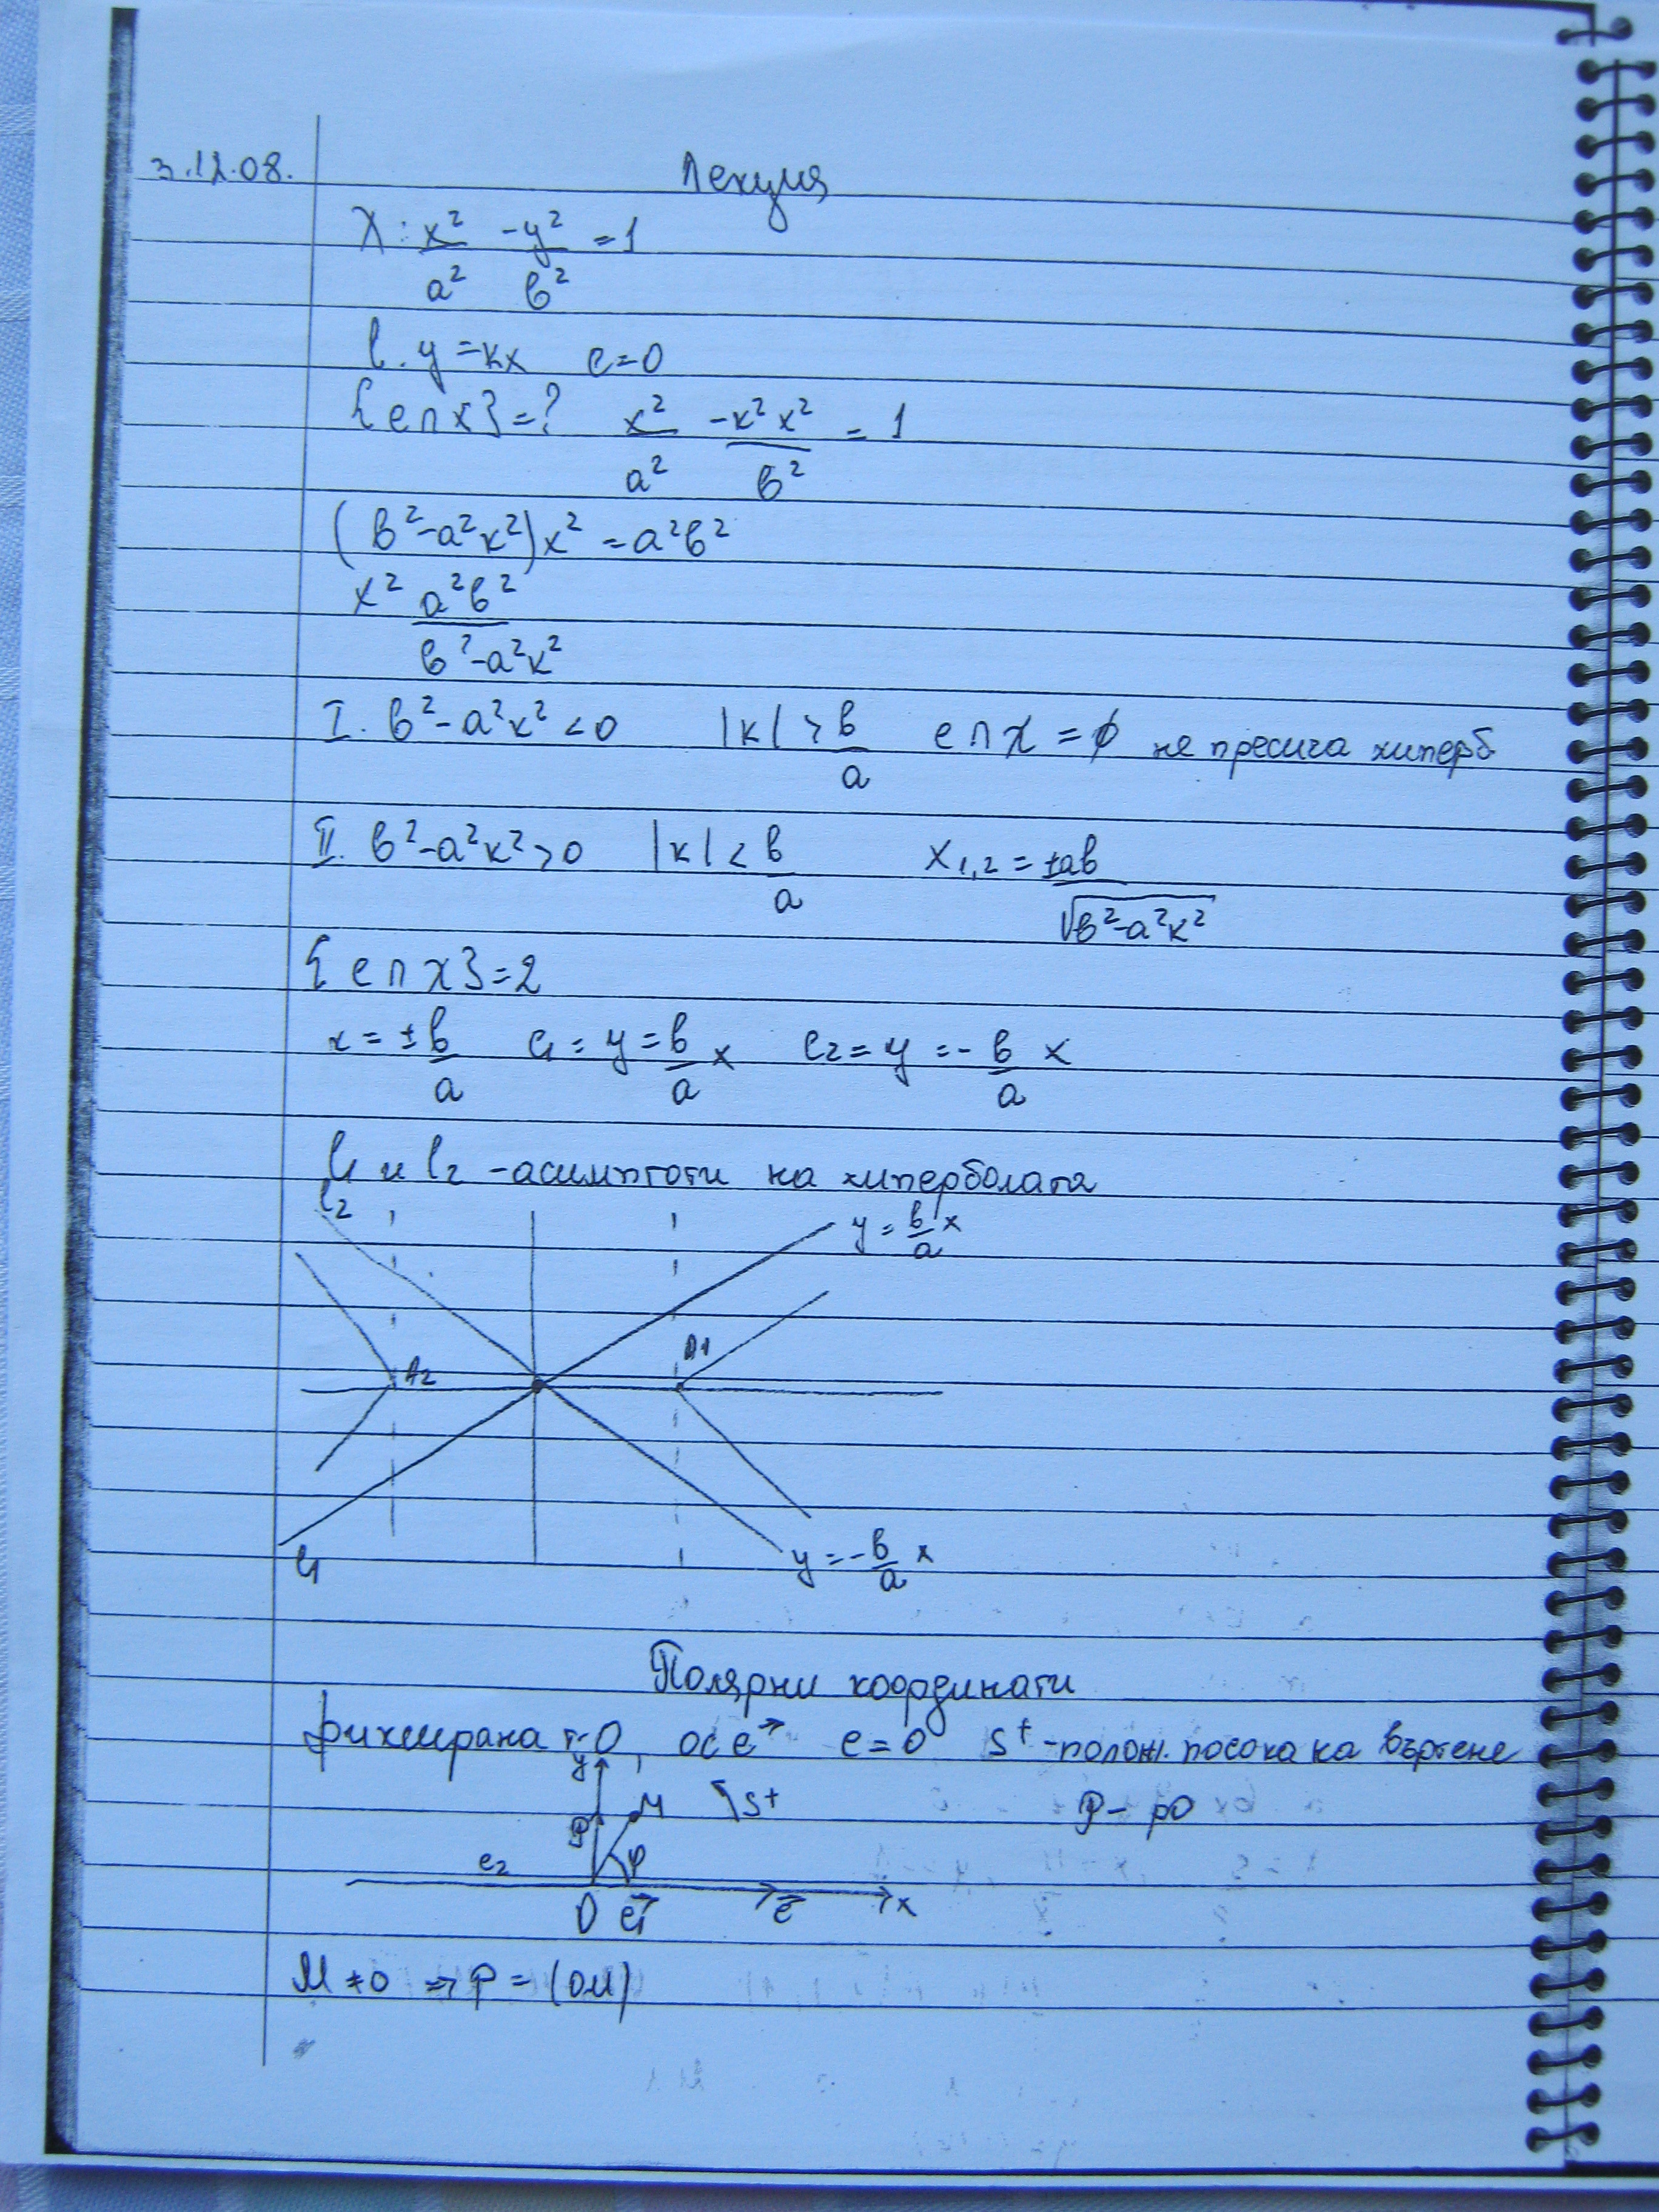 3.12.08. Лекция
χ: x²/a² - y²/в² = 1
l. y = кx e=0
{e∩χ} = ? x²/a² - к²x²/в² = 1
(в²-a²к²)x² = a²в²
x² a²в²/в²-a²к²
I. в²-a²к² < 0 |к| > в/a e∩χ = ϕ не пресича хиперб.
II. в²-a²к² > 0 |к| < в/a x₁,₂ = ±aв/√в²-a²к²
{e∩χ} = 2
к = ±в/a e₁ = y = в/a x e₂ = y = -в/a x
l₁ и l₂ - асимптоти на хиперболата
l₂ y = в/a x
A₂ A1
l₁ y = -в/a x
Полярни координати
фиксирана т. O, ос e→ e=0 S⁺ - полож. посока на въртене
y M S+ P - pO
P φ
e₂
O e₁→ e→ x
M ≠ o ⇒ P = |OM|